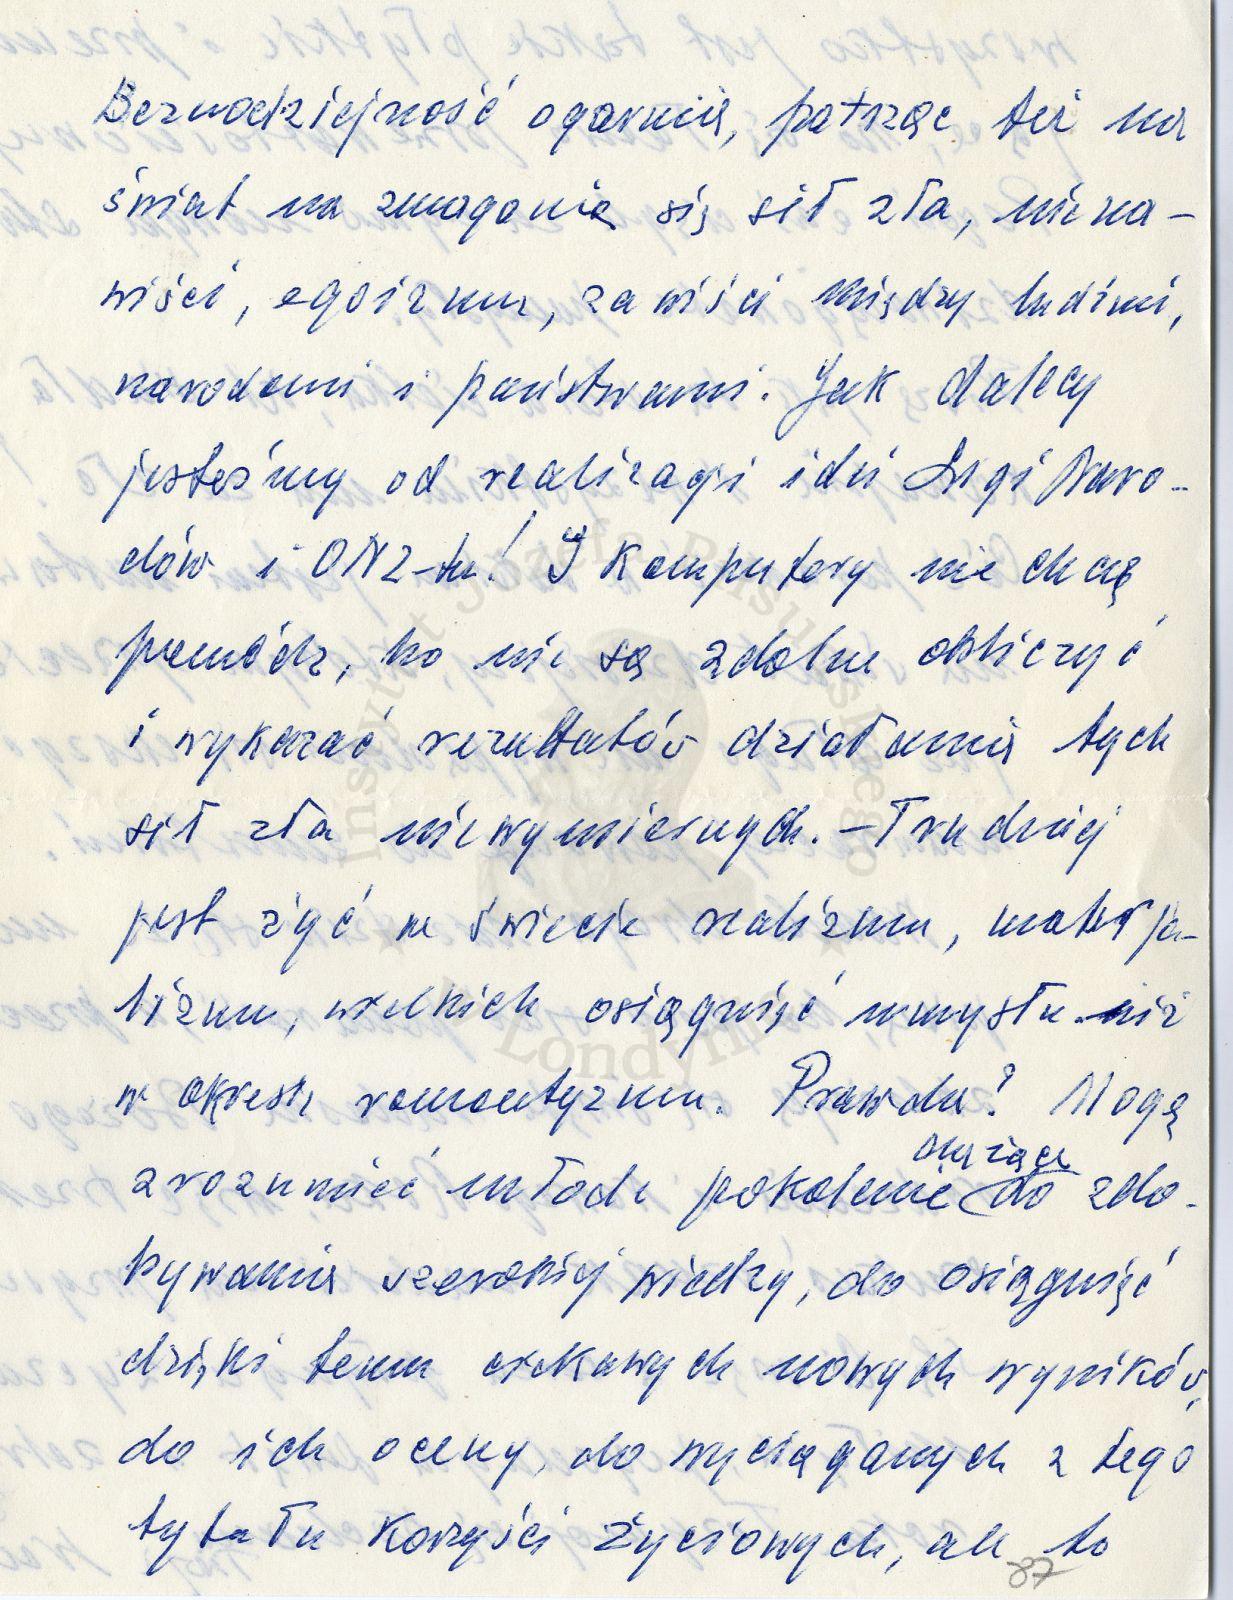 Beznadziejność ogarnia, patrząc też na
świat na zmagania się sił zła, niena-
wiści, egoizmu, zawiści między ludźmi,
narodami i państwami. Jak dalecy
jesteśmy od realizacji idei Ligi Naro-
dów i ONZ-tu! I komputery nie chcą
pomódz, bo nie są zdolne obliczyć
i wykazać rezultatów działania tych
sił zła niewymiernych. - Trudniej
jest żyć w świecie realizmu, materja-
lizmu, wielkich osiągnięć umysłu niż
w okresie romantyzmu. Prawda? Mogę
zrozumieć młode pokolenie dążące do zdo-
bywania szerokiej wiedzy, do osiągnięć
dzięki temu ciekawych nowych wyników,
do ich oceny, do wyciąganych z tego
tytułu korzyści życiowych, ale to
87
Instytut Józefa Piłsudskiego
w Londynie